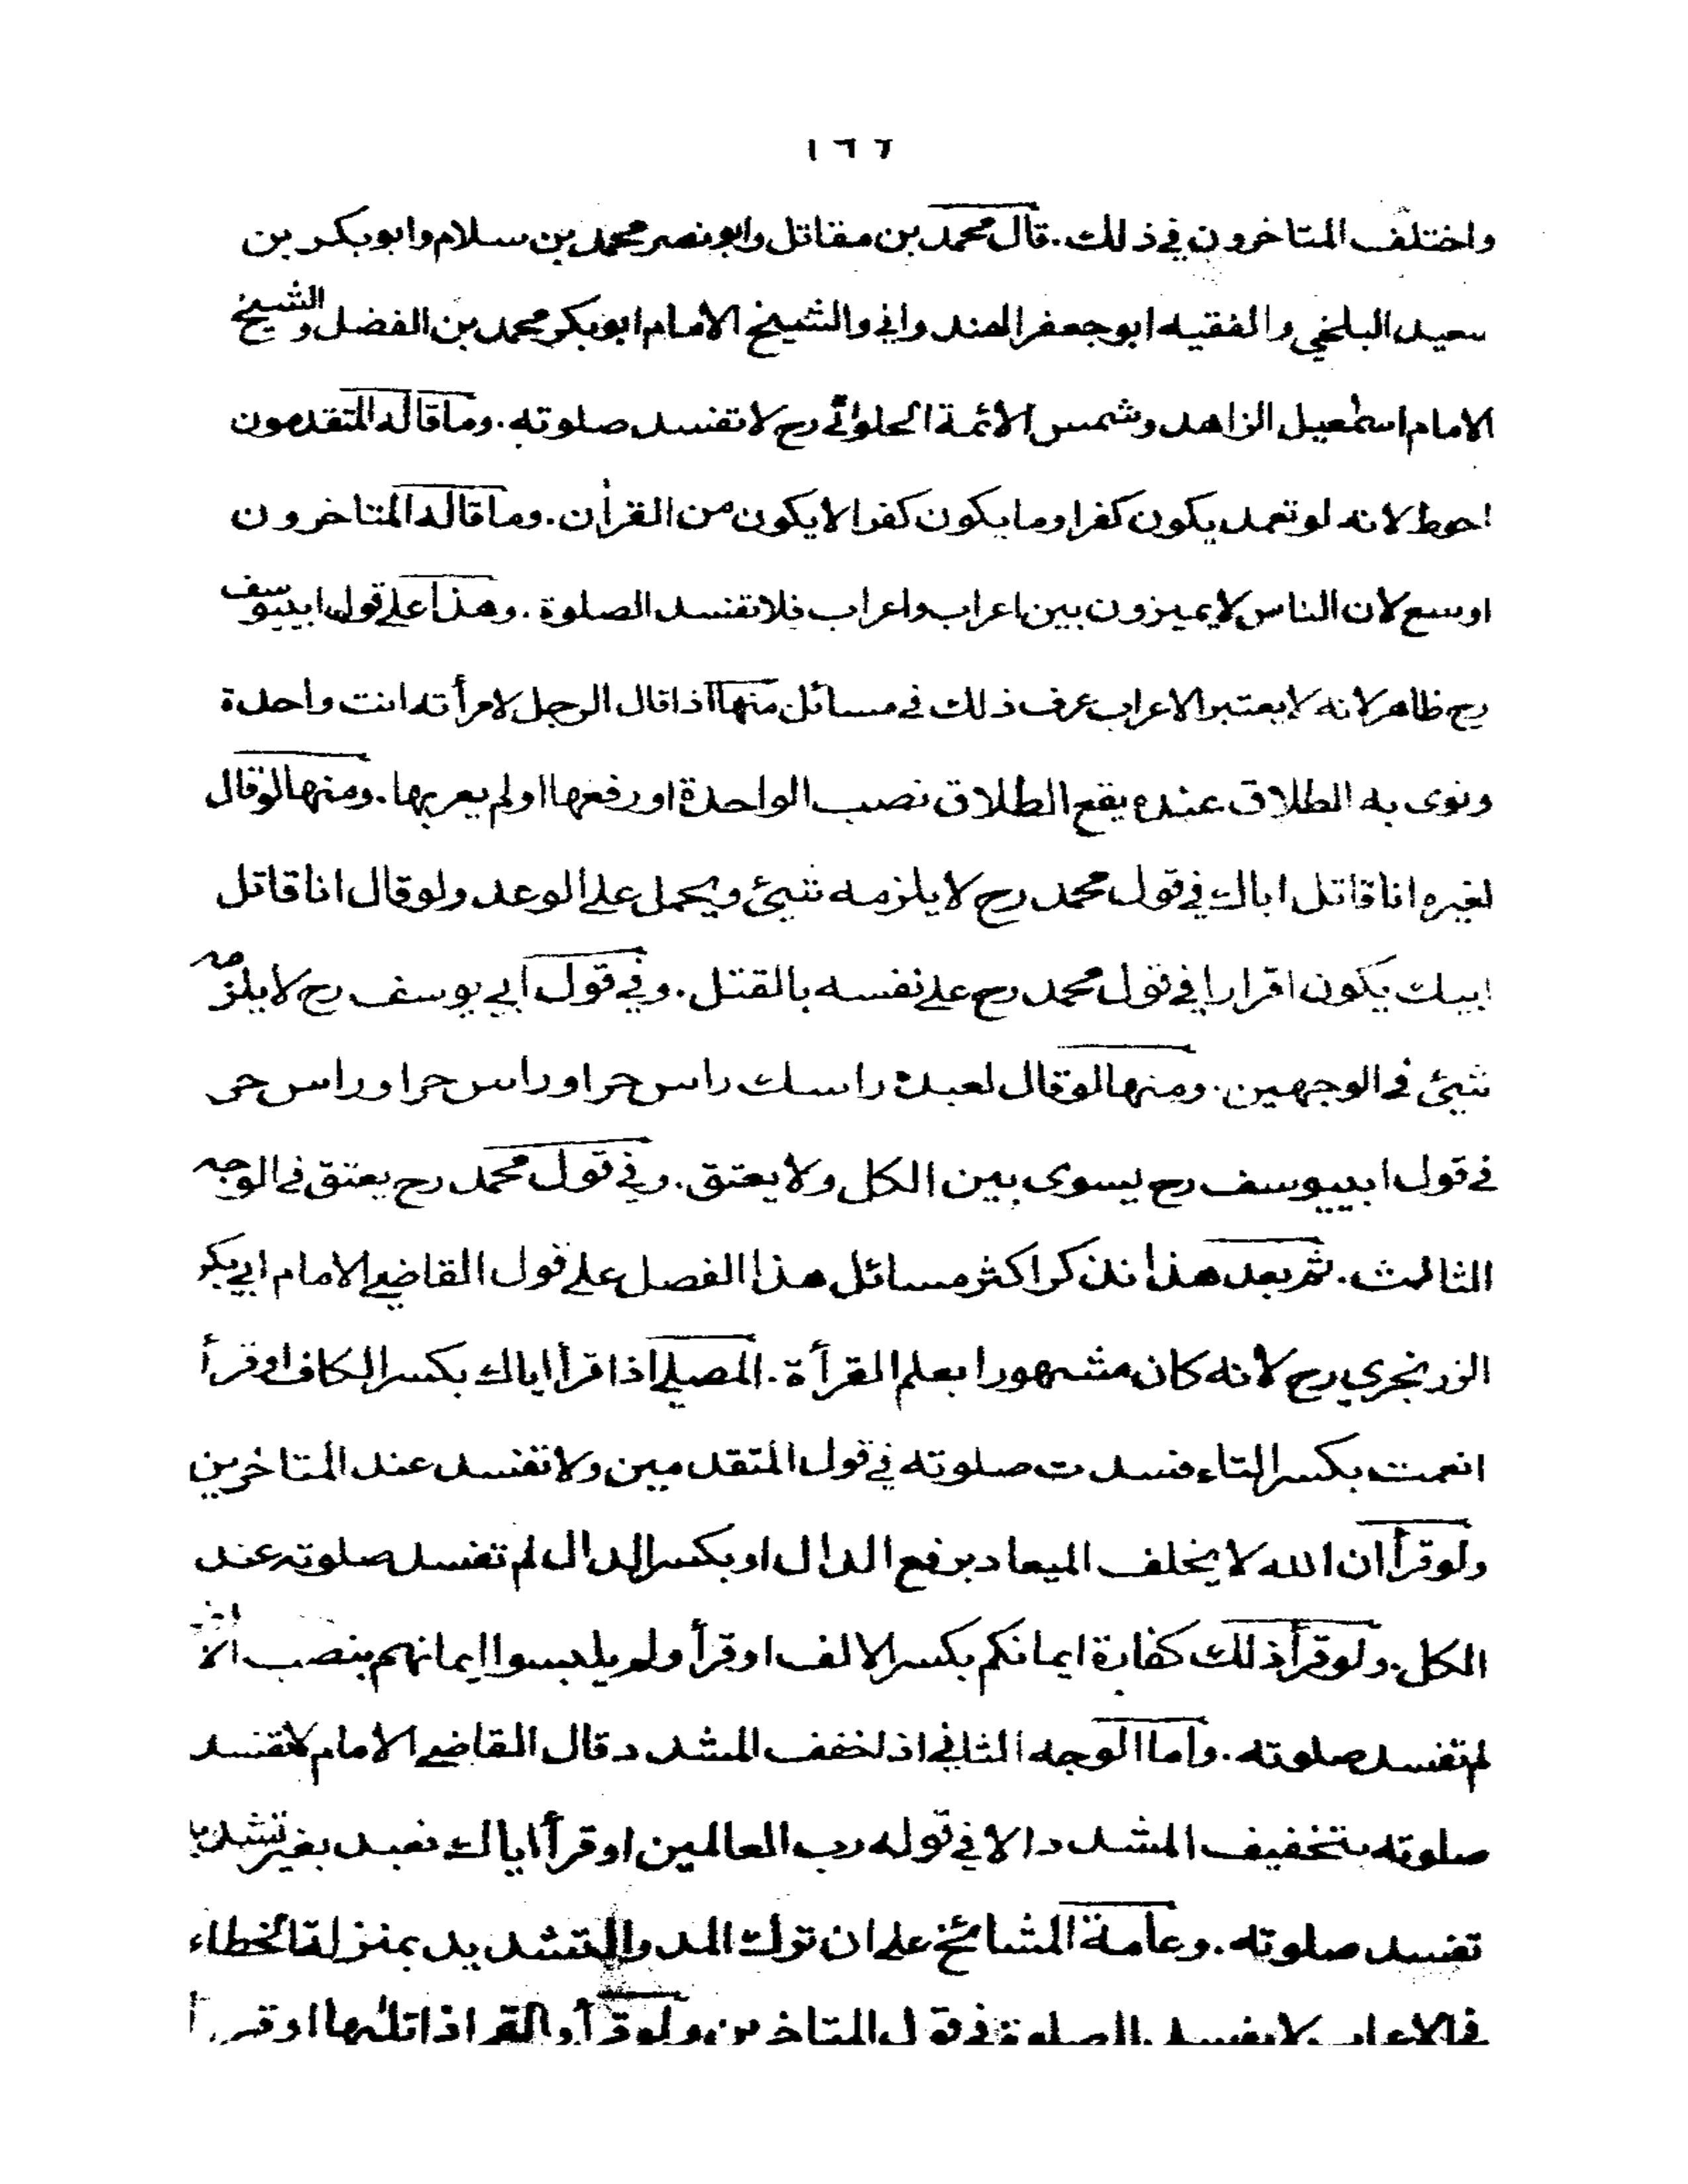 ١٦٦
واختلف المتاخرون في ذلك. قال محمد بن مقاتل وابو نصر محمد بن سلام وابو بكر بن
سعيد البلخي والفقيه ابو جعفر الهندواني والشيخ الامام ابو بكر محمد بن الفضل والشيخ
الامام اسمٰعيل الزاهد وشمس الائمة الحلوائي رح لا تفسد صلوته. وما قاله المتقدمون
احوط لانه لو تعمد يكون كفرا وما يكون كفرا لا يكون من القرأن. وما قاله المتاخرون
اوسع لان الناس لا يميزون بين اعراب واعراب فلا تفسد الصلوة. وهذا على قول ابييوسف
رح ظاهر لانه لا يعتبر الاعراب عرف ذلك في مسائل منها اذا قال الرجل لامرأته انت واحدة
ونوى به الطلاق عنده يقع الطلاق نصب الواحدة او رفعها او لم يعربها. ومنها لو قال
لغيره انا قاتل اباك في قول محمد رح لا يلزمه شيئ ويحمل على الوعد ولو قال انا قاتل
ابيك يكون اقرارا في قول محمد رح على نفسه بالقتل. وفي قول ابي يوسف رح لا يلزمه
شيئ في الوجهين. ومنها لو قال لعبده راسك راس حر او راس حر او راس حر
في قول ابييوسف رح يسوى بين الكل ولا يعتق. وفي قول محمد رح يعتق في الوجه
الثالث. ثم بعد هذا نذكر اكثر مسائل هذا الفصل على قول القاضي الامام ابي بكر
الزرنجري رح لانه كان مشهورا بعلم القرأة. المصلي اذا قرأ اياك بكسر الكاف او قرأ
انعمت بكسر التاء فسدت صلوته في قول المتقدمين ولا تفسد عند المتاخرين
ولو قرأ ان الله لا يخلف الميعاد برفع الدال او بكسر الدال لم تفسد صلوته عند
الكل. ولو قرأ ذلك كفارة ايمانكم بكسر الالف او قرأ ولم يلبسوا ايمانهم بنصب الالف
لم تفسد صلوته. واما الوجه الثاني اذا خفف المشدد قال القاضي الامام لا تفسد
صلوته بتخفيف المشدد الا في قوله رب العالمين او قرأ اياك نعبد بغير تشديد
تفسد صلوته. وعامة المشائخ على ان ترك المد والتشديد بمنزلة الخطاء
في الاعراب لا يفسد الصلوة في قول المتاخرين ولو قرأ والقمر اذا تلٰها او قرأ